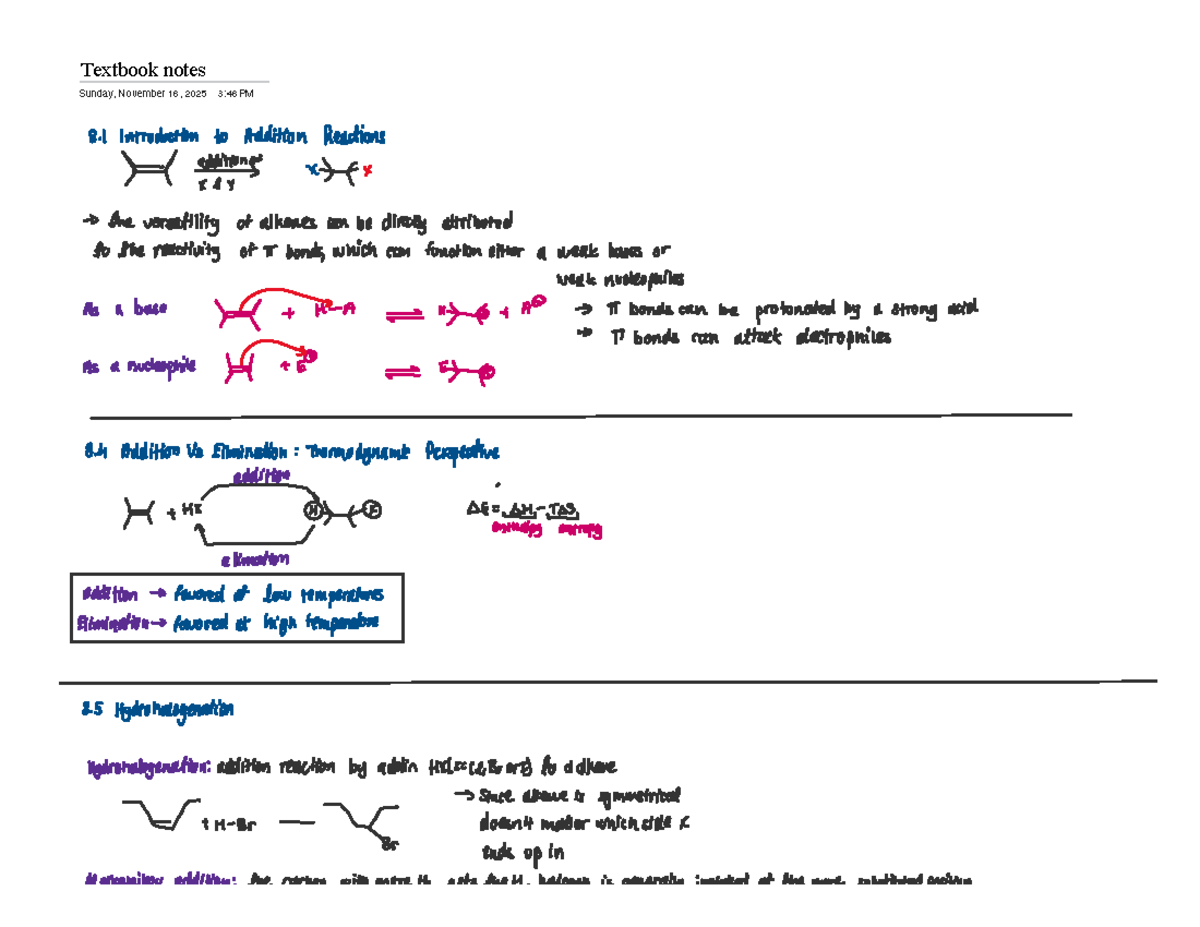 Textbook notes
Sunday, November 16, 2025 3:46 PM
8.1 Introduction to Addition Reactions
addition of
X & Y
X Y
→ the versatility of alkenes can be directly attributed
to the reactivity of π bonds, which can function either a weak bases or
weak nucleophiles
As a base + H-A ⇌ H + + A⊖ → π bonds can be protonated by a strong acid
→ π bonds can attack electrophiles
As a nucleophile + E⊕ ⇌ E +
8.4 Addition Vs Elimination: Thermodynamic Perspective
addition
+ HX H X ΔG = ΔH - TΔS
enthalpy entropy
elimination
Addition → favored at low temperatures
Elimination → favored at high temperature
8.5 Hydrohalogenation
Hydrohalogenation: addition reaction by addin HX to a alkene
→ Since alkene is symmetrical
+ H-Br doesn't matter which side X
Br ends up in
addition: the carbon with more H gets the H, halogen is generally installed at the more substituted